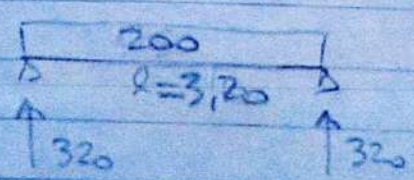 200
l=3,20
320 320